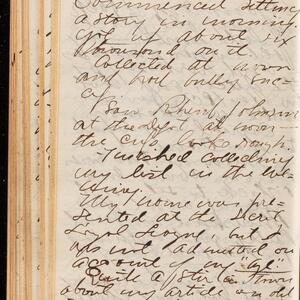 Commenced setting
a story in morning
got up about six
thousand on it
Collected at noon
and had bully suc-
cess.
Saw Johnson
at the depot at noon
the cuss looks rough.
Finished collecting
my list in the eve-
ning.
My name was pre-
sented at the Secret
Loyal League, but I
was not admitted on
account of my "age".
Quite a stir in town
about my article on old